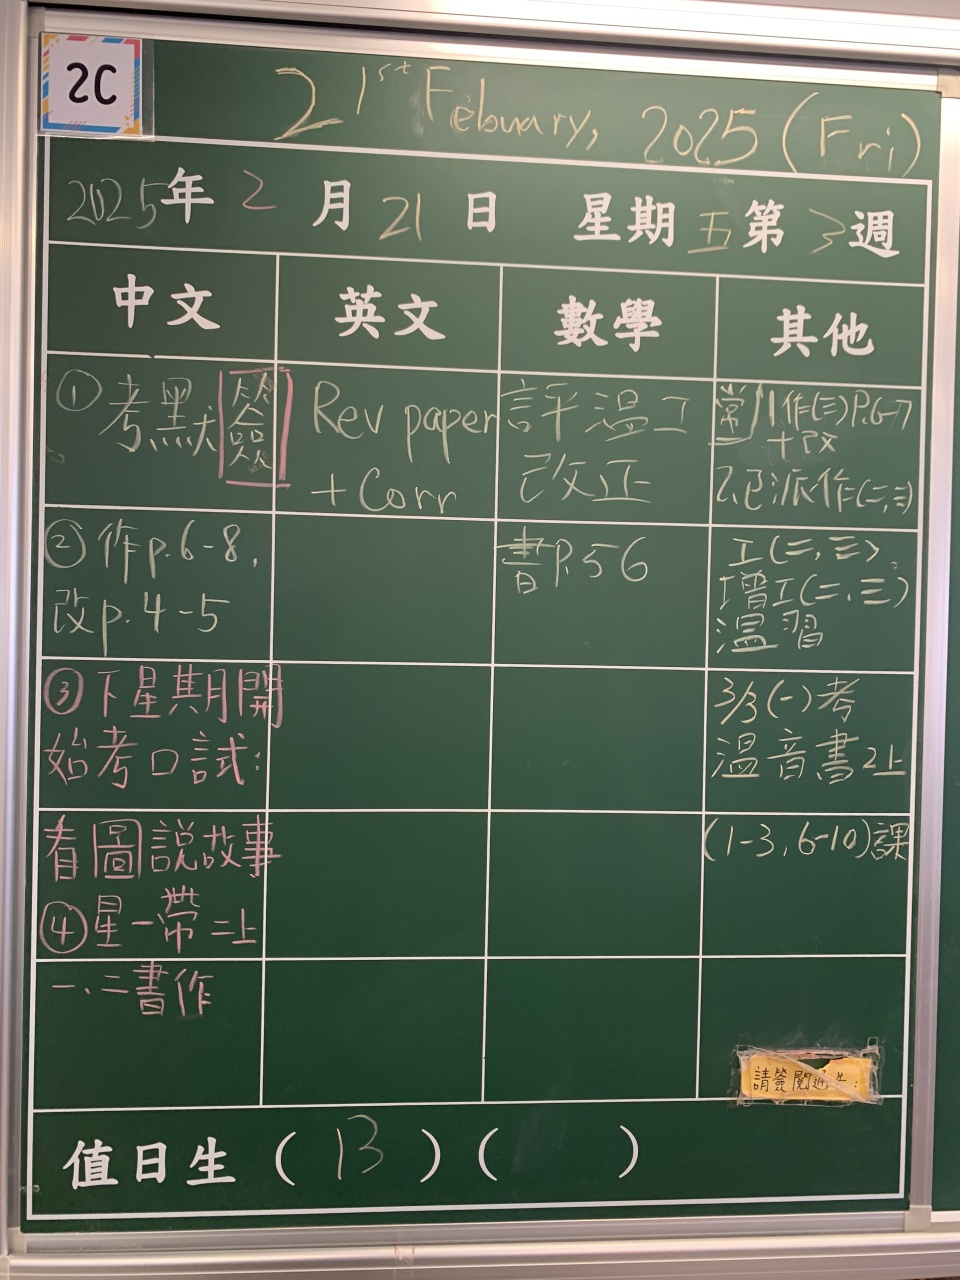 2C
21st Febuary, 2025 (Fri)
2025年2月21日 星期五第3週
中文
英文
數學
其他
①考默簽
②作p.6-8,
改p.4-5
③下星期開
始考口試:
看圖說故事
④星一帶二上
一、二書作
Rev paper
+ Corr
評溫工
改正
書P.56
常作(三)P.6-7
+改
已派作(二,三)
工(二,三),
增工(二,三)
溫習
3/3(一)考
溫音書2上
(1-3,6-10)課
請簽閱通告:
值日生 ( 13 ) ( )